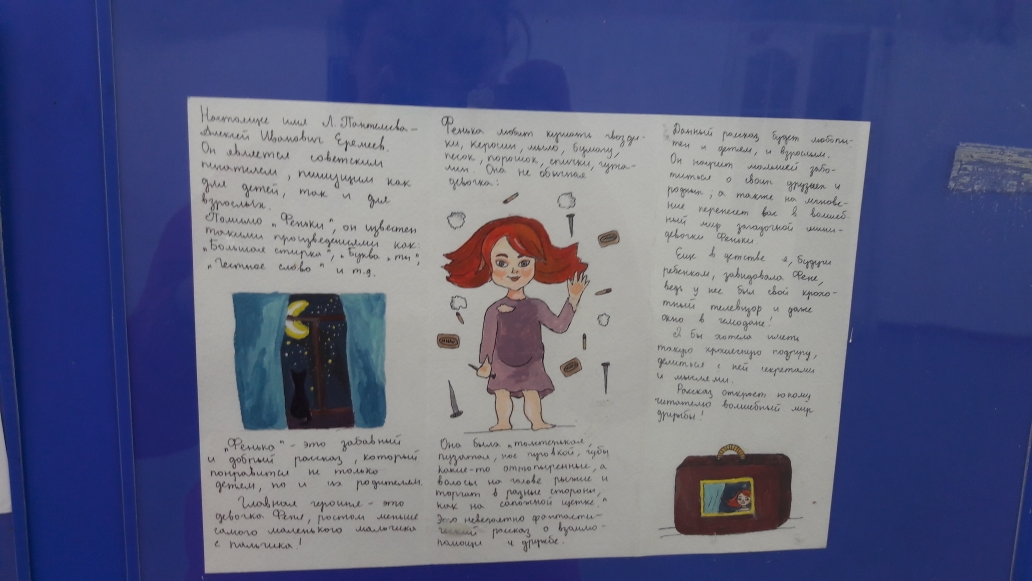 Настоящее имя Л. Пантелеева -
Алексей Иванович Еремеев.
Он является советским
писателем, пишущим как
для детей, так и для
взрослых.
Помимо „Феньки", он известен
такими произведениями как
„Большая стирка", „Буква „ты",
„Честное слово" и т.д.
„Фенька" - это забавный
и добрый рассказ, который
понравится не только
детям, но и их родителям.
Главная героиня - это
девочка Феня, ростом меньше
самого маленького мальчика
с пальчика!
Фенька любит кушать гвозди-
ки, керосин, мыло, бумагу,
песок, порошок, спички, чута-
ми. Она не обычная
девочка:
Она была „толстенькая,
пузатая, нос пуговкой, губы
какие-то оттопыренные, а
волосы на голове рыжие и
торчат в разные стороны,
как на сапожной щетке."
Это невероятно фантасти-
ческий рассказ о взаимо-
помощи и дружбе.
Данный рассказ будет любопы-
тен и детям, и взрослым.
Он научит малышей забо-
титься о своих друзьях и
родных, а также на мгнове-
ние перенесет вас в волшеб-
ный мир загадочной мини-
девочки Феньки.
Еще в детстве я, будучи
ребенком, завидовала Фене,
ведь у нее был свой крохо-
тный телевизор и даже
окно в чемодане!
Я бы хотела иметь
такую крошечную подругу,
делиться с ней секретами
и мыслями.
Рассказ откроет юному
читателю волшебный мир
дружбы!